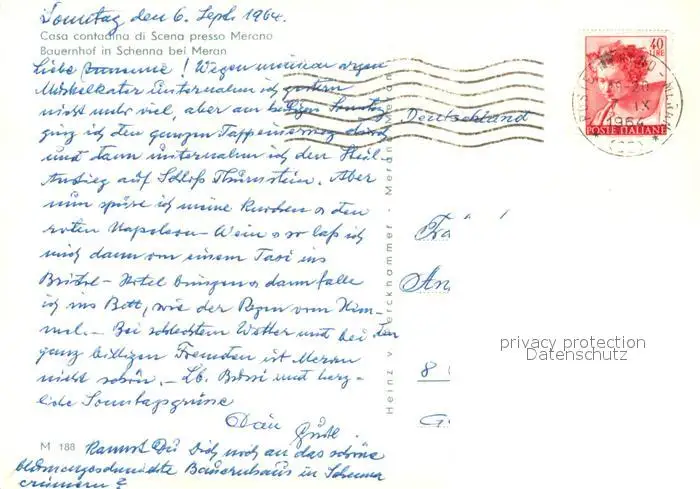 Sonntag den 6. Sept. 1964.
Casa contadina di Scena presso Merano
Bauernhof in Schenna bei Meran
Liebe ! Wegen meinem argen
Muskelkater unternahm ich gestern
nicht mehr viel, aber am heutigen Sonntag
ging ich den ganzen Tappeinerweg durch
und dann unternahm ich den Steil-
Anstieg auf Schloß Thurnstein. Aber
nun spüre ich meine Knochen den
roten Napoleon-Wein so laß ich
mich dann von einem Taxi ins
Bristol-Hotel bringen dann falle
ich ins Bett, wie der Regen vom Him-
mel. - Bei schlechtem Wetter und bei den
ganz billigen Fremden ist Meran
nicht schön. - Lb. Bussi und herz-
liche Sonntagsgrüsse
Dein
M 188 Kannst Du Dich noch an das schöne
blumengeschmückte Bauernhaus in Schenna
erinnern?
Heinz v. - Merano - Meran
Deutschland
40
LIRE
POSTE ITALIANE
IX
1964
Frä
An
8
privacy protection
Datenschutz